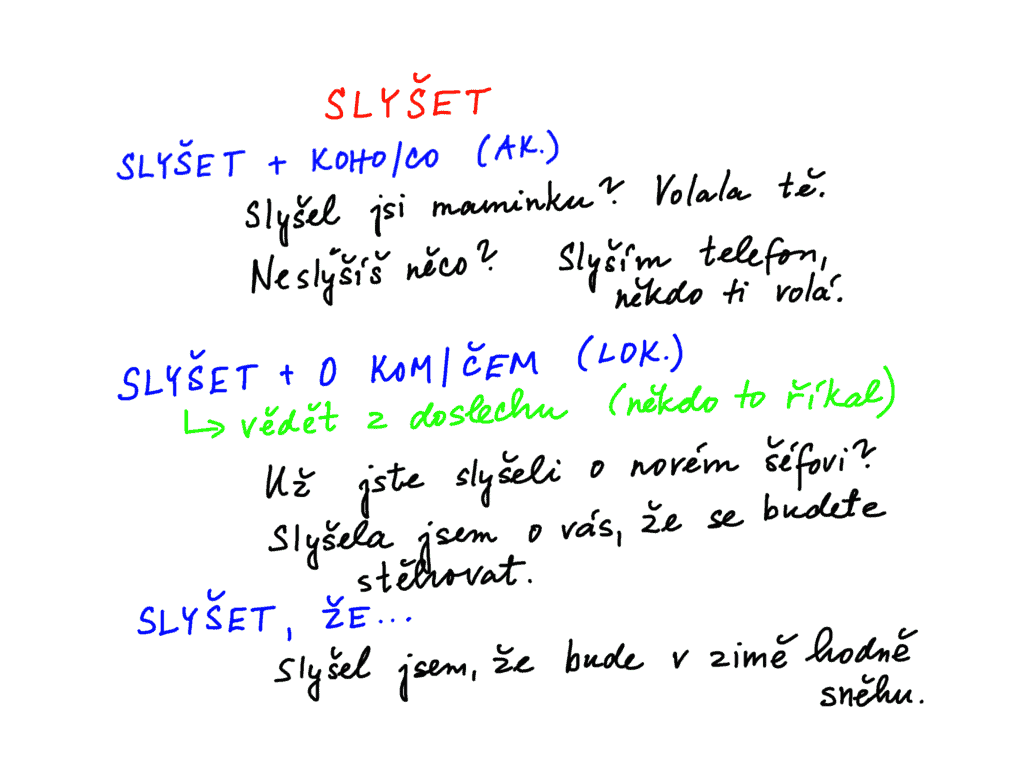 SLYŠET
SLYŠET + KOHO/CO (AK.)
Slyšel jsi maminku? Volala tě.
Neslyšíš něco? Slyším telefon,
někdo ti volá.
SLYŠET + O KOM/ČEM (LOK.)
↳ vědět z doslechu (někdo to říkal)
Už jste slyšeli o novém šéfovi?
Slyšela jsem o vás, že se budete
stěhovat.
SLYŠET, ŽE...
Slyšel jsem, že bude v zimě hodně
sněhu.